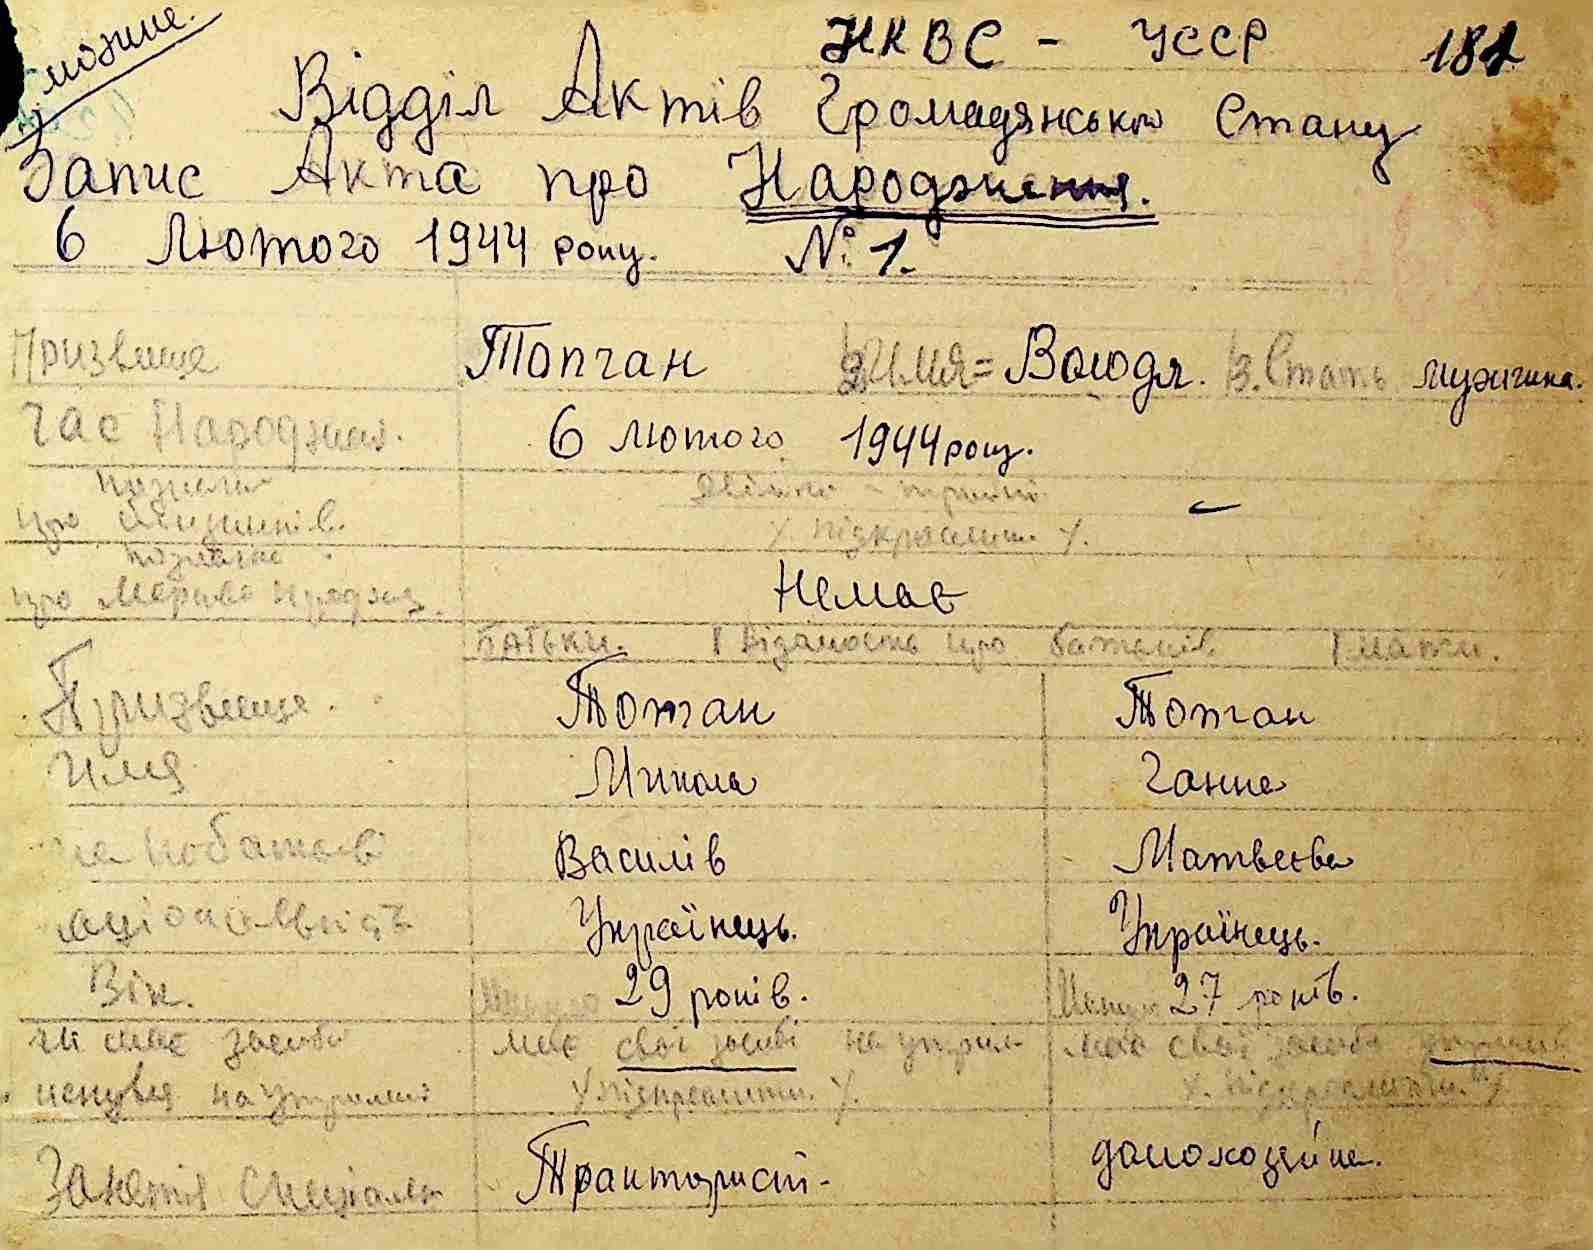 НКВС - УССР 181
Відділ Актів Громадянсько Стану
Запис Акта про Народження.
6 Лютого 1944 року. №: 1.
Призвище Топчан 2 Имя = Володя. 3. Стать мужчина.
Час Народжня. 6 лютого 1944 року.
двійня - трійні
про близнюків. У підкреслити У.
про Мертво Немає
БАТЬКИ. Відомость про батьків мати.
Призвище. Топчан Топчан
Имя Микола Ганна
по батькові Василів Матвеева
аціональність Українець. Українець.
Вік. Минуло 29 років. Минуло 27 років.
чи має засоби має свої засоби на утрим має свої засоби
існував на утримані У підкреслити. У. У. підкреслити. У
Заняття Спеціаль Тракторист. домохозяйка.